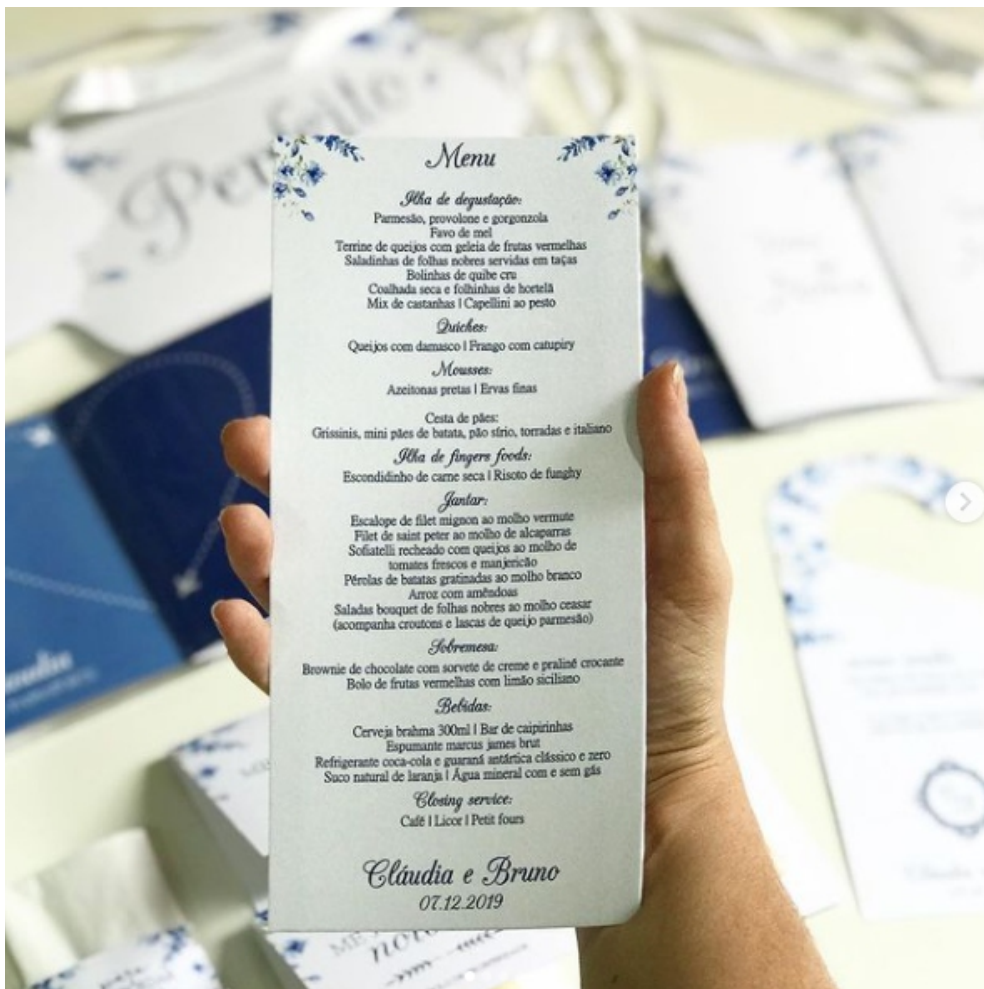 Perfeito
Menu
Ilha de degustação:
Parmesão, provolone e gorgonzola
Favo de mel
Terrine de queijos com geleia de frutas vermelhas
Saladinhas de folhas nobres servidas em taças
Bolinhas de quibe cru
Coalhada seca e folhinhas de hortelã
Mix de castanhas | Capellini ao pesto
Quiches:
Queijos com damasco | Frango com catupiry
Mousses:
Azeitonas pretas | Ervas finas
Cesta de pães:
Grissinis, mini pães de batata, pão sírio, torradas e italiano
Ilha de fingers foods:
Escondidinho de carne seca | Risoto de funghy
Jantar:
Escalope de filet mignon ao molho vermute
Filet de saint peter ao molho de alcaparras
Sofiatelli recheado com queijos ao molho de
tomates frescos e manjericão
Pérolas de batatas gratinadas ao molho branco
Arroz com amêndoas
Saladas bouquet de folhas nobres ao molho ceasar
(acompanha croutons e lascas de queijo parmesão)
Sobremesa:
Brownie de chocolate com sorvete de creme e praliné crocante
Bolo de frutas vermelhas com limão siciliano
Bebidas:
Cerveja brahma 300ml | Bar de caipirinhas
Espumante marcus james brut
Refrigerante coca-cola e guaraná antártica clássico e zero
Suco natural de laranja | Água mineral com e sem gás
Closing service:
Café | Licor | Petit fours
Cláudia e Bruno
07.12.2019